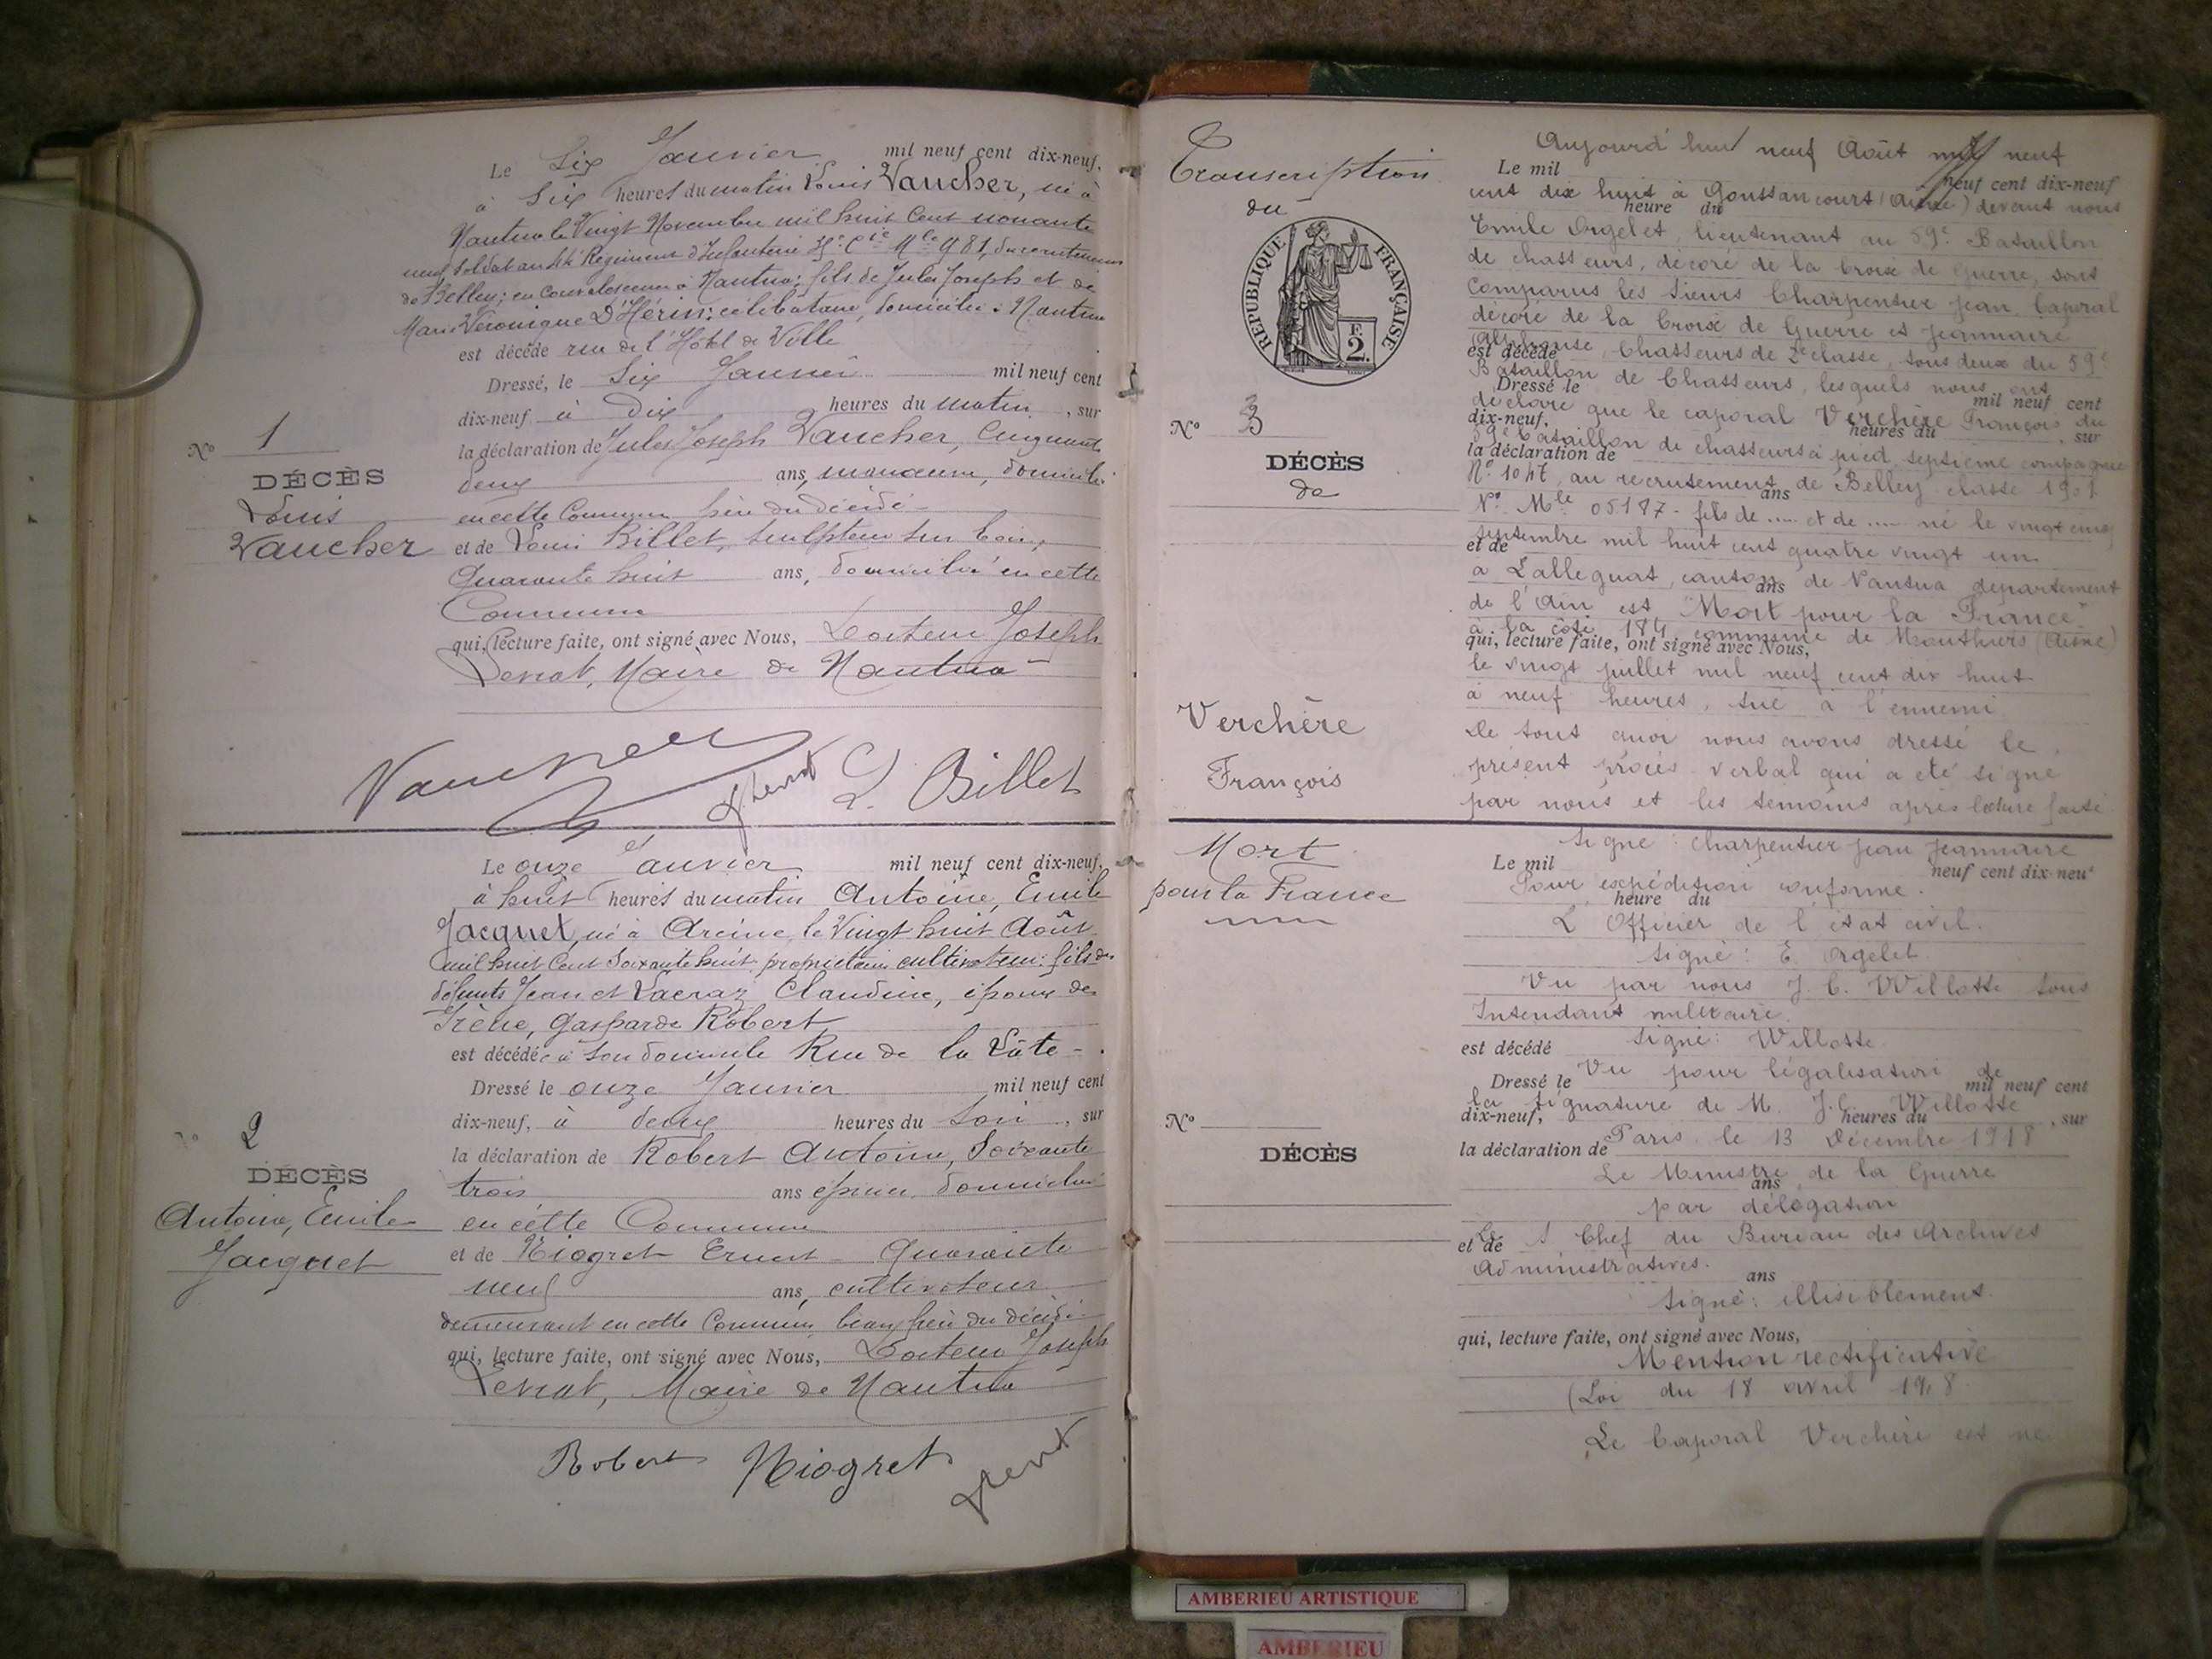 Le Six Janvier mil neuf cent dix-neuf,
à Six heures du matin Louis Vaucher, né à
Nantua le Vingt Novembre mil huit Cent nonante
neuf, Soldat au Régiment d'Infanterie Mle 981, du recrutement
de Belley; en Convalescence à Nantua; fils de Jules Joseph et de
Marie Véronique D'Hérin; célibataire, domicilié à Nantua
est décédé rue de l'Hôtel de Ville
Dressé, le Six Janvier mil neuf cent
dix-neuf à Dix heures du matin, sur
la déclaration de Jules Joseph Vaucher, Cinquante
deux ans, manœuvre, domicilié
en cette Commune père du décédé
et de Louis Billet, sculpteur sur bois,
Quarante huit ans, domicilié en cette
Commune
qui, lecture faite, ont signé avec Nous, Docteur Joseph
Levrat, Maire de Nantua
No 1
DÉCÈS
Louis
Vaucher
Vaucher Levrat L. Billet
Le onze Janvier mil neuf cent dix-neuf,
à huit heures du matin Antoine, Emile
Jacquet, né à le Vingt huit Août
mil huit Cent Soixante huit propriétaire cultivateur: fils des
défunts Jean et Lacraz Claudine, époux de
Irène, Gasparde Robert
est décédé à son domicile Rue de la
Dressé le onze Janvier mil neuf cent
dix-neuf, à deux heures du Soir, sur
la déclaration de Robert Antoine, Soixante
trois ans épicier, domicilié
en cette Commune
et de Niogret Ernest Quarante
neuf ans, cultivateur
demeurant en cette Commune, beau frère du décédé
qui, lecture faite, ont signé avec Nous, Docteur Joseph
Levrat, Maire de Nantua
No 2
DÉCÈS
Antoine, Emile
Jacquet
Robert Niogret Levrat
Transcription
du
RÉPUBLIQUE FRANÇAISE
2 F.
No 3
DÉCÈS
de
Verchère
François
Mort
pour la France
Aujourd'hui neuf Août mil neuf
Le mil neuf cent dix-neuf
cent dix huit à Goussancourt (Aisne) devant nous
heure du
Emile Orgelet, lieutenant au 59e Bataillon
de chasseurs, décoré de la Croix de Guerre, sont
comparus les sieurs Charpentier Jean, Caporal
décoré de la Croix de Guerre et Jeannaire
Alphonse, Chasseurs de 2e classe, tous deux du 59e
est décédé
Bataillon de Chasseurs, lesquels nous ont
Dressé le mil neuf cent
déclaré que le caporal Verchère François du
dix-neuf, heures du , sur
59e bataillon de chasseurs à pied, septième compagnie
la déclaration de
No 1047, au recrutement de Belley classe 1901
ans
No Mle 05187 - fils de ..... et de ..... né le vingt cinq
septembre mil huit cent quatre vingt un
et de
à Lalleyriat, canton de Nantua, département
ans
de l'Ain est "Mort pour la France"
à la côte 184 commune de Monthiers (Aisne)
qui, lecture faite, ont signé avec Nous,
le vingt juillet mil neuf cent dix huit
à neuf heures, tué à l'ennemi
De tout quoi nous avons dressé le
présent procès verbal qui a été signé
par nous et les témoins après lecture faite
Signé : Charpentier Jean Jeannaire
Le mil neuf cent dix-neuf
Pour expédition conforme.
heure du
L'Officier de l'état civil.
Signé : E. Orgelet.
Vu par nous J. C. Willotte Sous
Intendant militaire.
est décédé Signé : Willotte
Vu pour légalisation de
Dressé le mil neuf cent
la signature de M. J. C. Willotte
dix-neuf, heures du , sur
Paris, le 13 Décembre 1918
la déclaration de
Le Ministre de la Guerre
ans
par délégation
Le S Chef du Bureau des Archives
et de
Administratives.
ans
Signé : illisiblement.
qui, lecture faite, ont signé avec Nous,
Mention rectificative
(Loi du 18 avril 1918
Le Caporal Verchère est né
No
DÉCÈS
AMBERIEU ARTISTIQUE
AMBERIEU